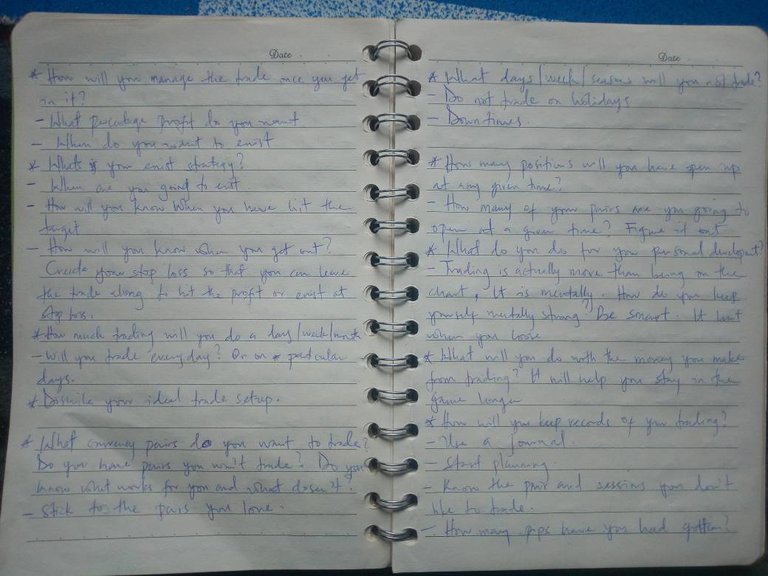 Date
* How will you manage the trade once you get
in it?
- What percentage profit do you want
- When do you want to exist
* Whats is your exist strategy?
- When are you going to exit
- How will you know when you have hit the
target
- How will you know when you get out?
Create your stop loss so that you can leave
the trade along to hit the profit or exist at
stop loss.
* How much trading will you do a day/week/month
- Will you trade everyday? Or on particular
days.
* Describe your ideal trade setup.
* What currency pairs do you want to trade?
Do you have pairs you won't trade? Do you
know what works for you and what doesn't.
- Stick to the pairs you love.
Date
* What days/week/seasons will you not trade?
- Do not trade on holidays
- Downtimes.
* How many positions will you have open up
at any given time?
- How many of your pairs are you going to
open at a given time? Figure it out
* What do you do for you personal development?
- Trading is actually more than being on the
chart, It is mentally. How do you keep
yourself mentally strong? Be smart. It hurt
when you loose
* What will you do with the money you make
from trading? It will help you stay in the
game longer
* How will you keep records of your trading?
- Use a journal.
- Start planning
- Know the pair and sessions you don't
like to trade.
- How many pips have you had gotten?